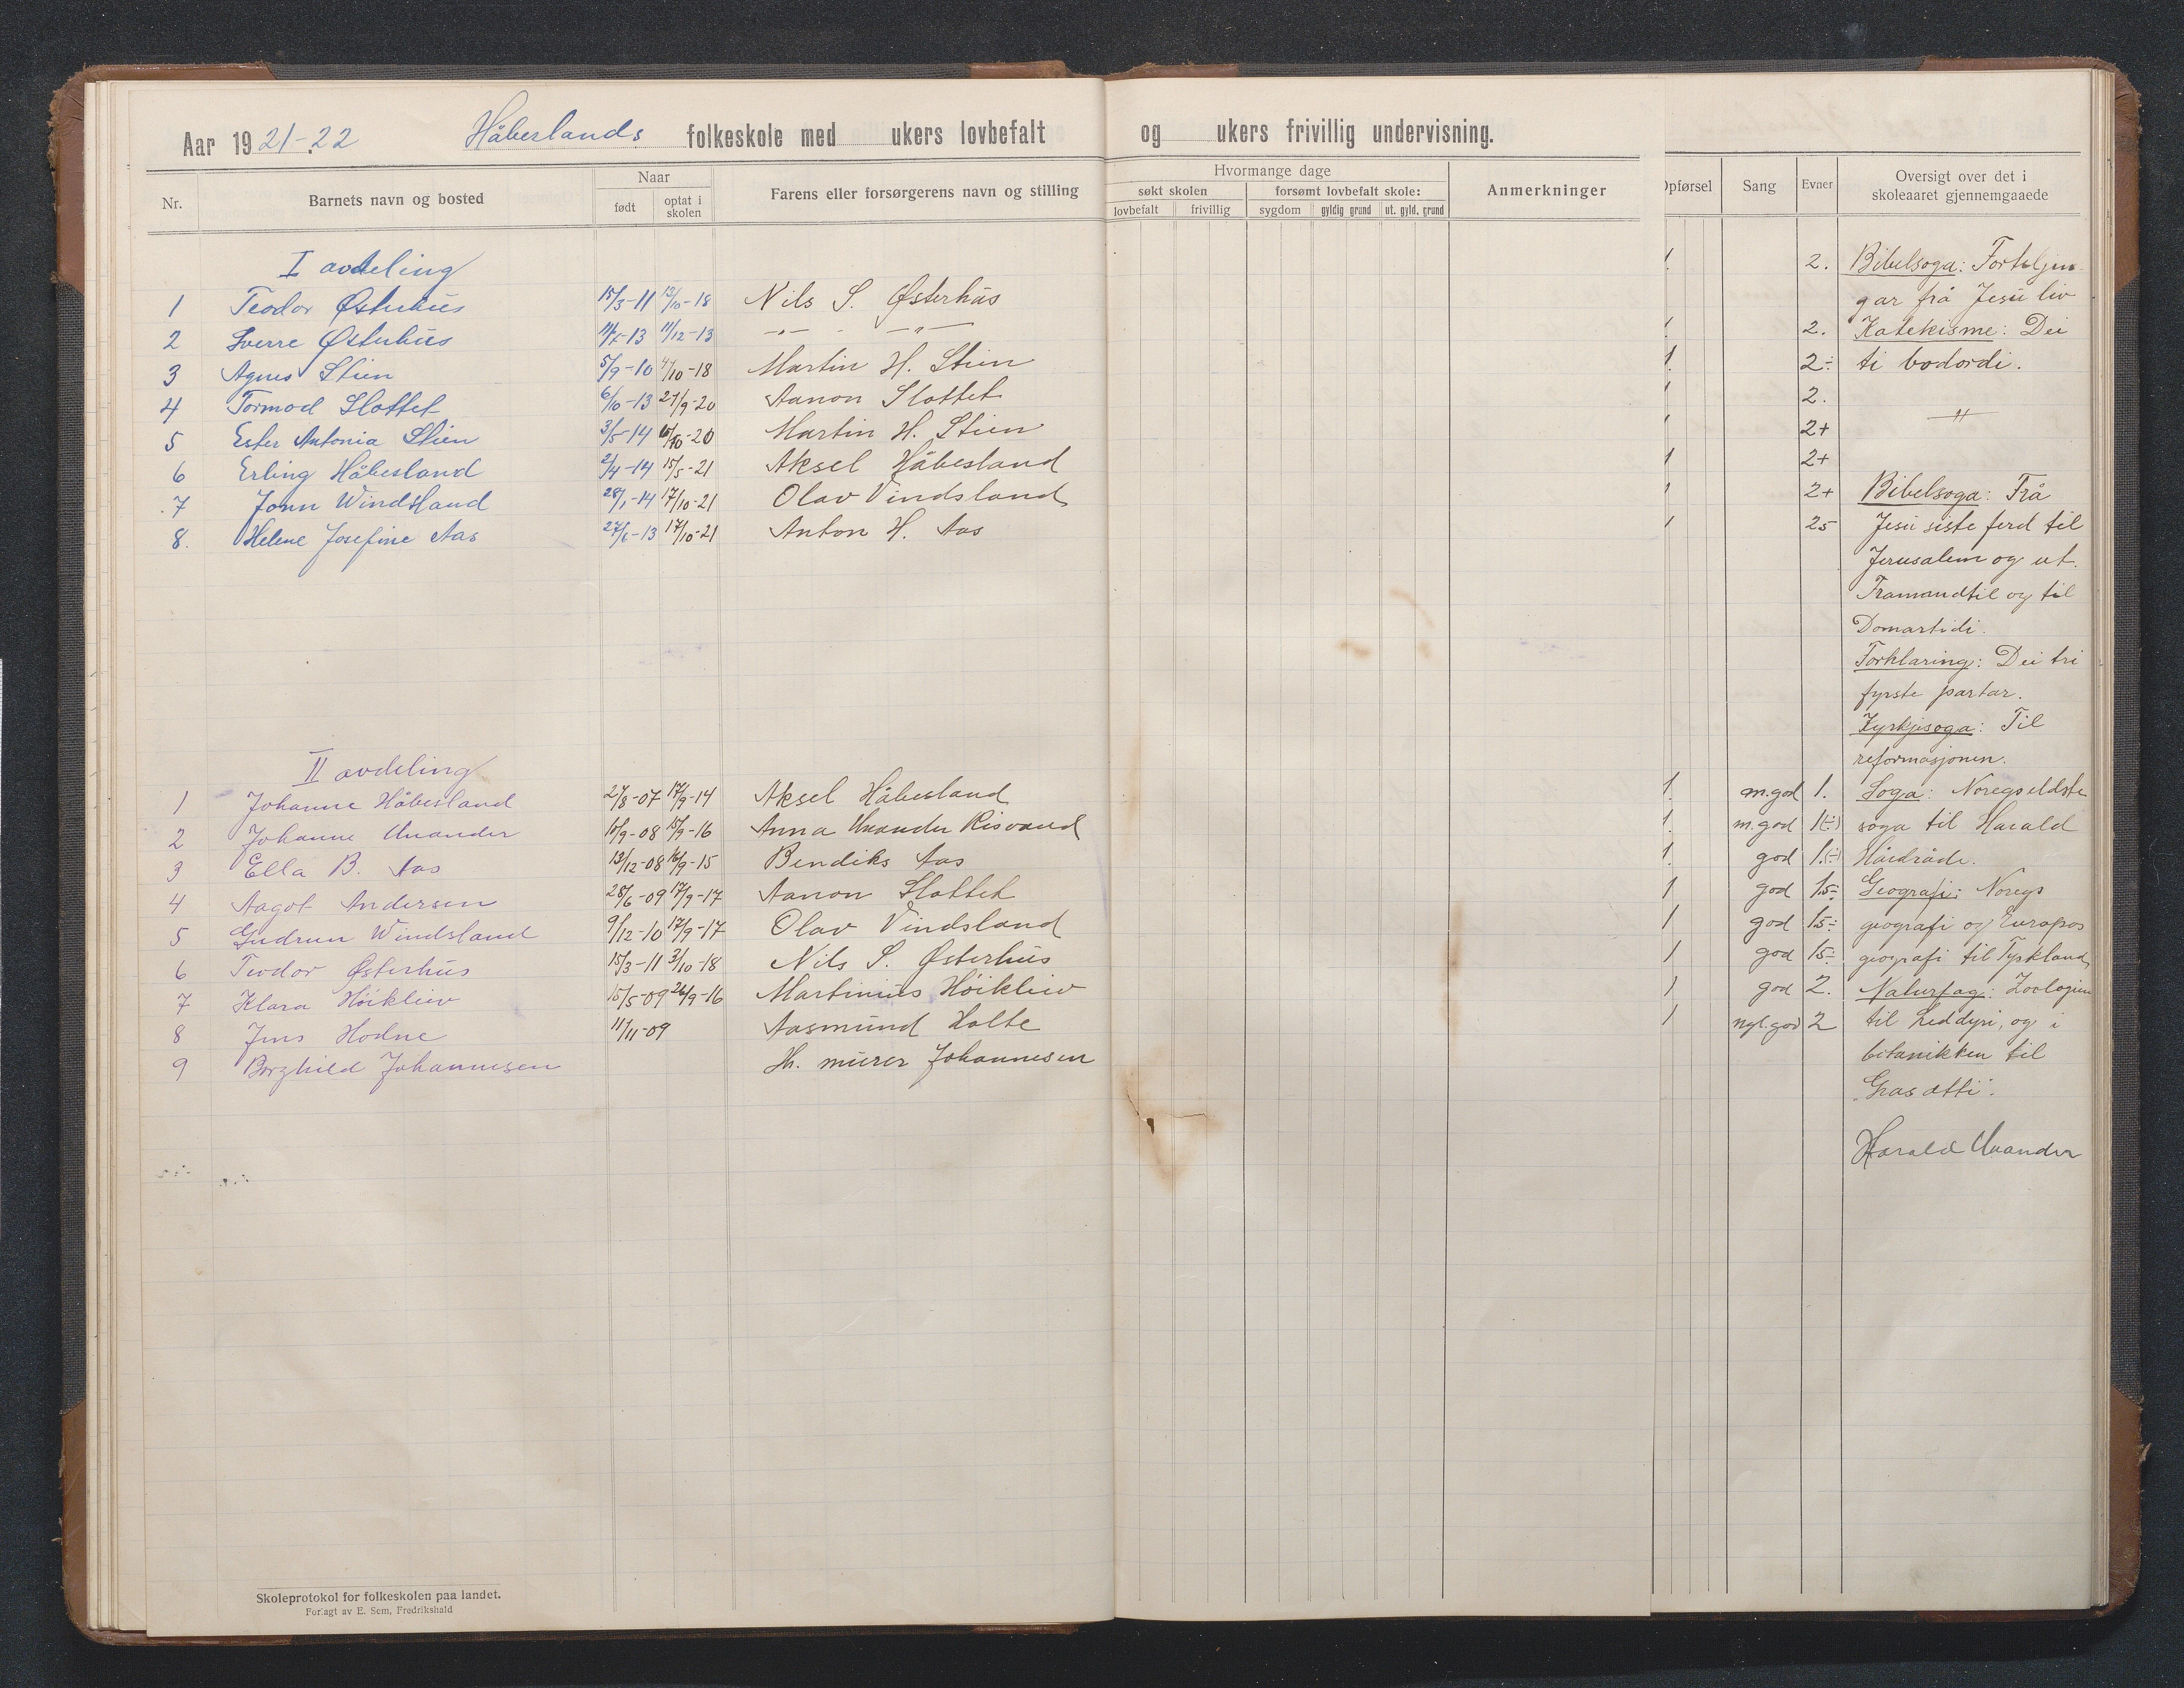 Aar 1921-22 Håbeslands folkeskole med ukers lovbefalt og ukers frivillig undervisning.
Nr. Barnets navn og bosted Naar født optat i skolen Farens eller forsørgerens navn og stilling
Hvormange dage
søkt skolen forsømt lovbefalt skole:
lovbefalt frivillig sygdom gyldig grund ut. gyld. grund
Anmerkninger
Opførsel Sang Evner Oversigt over det i skoleaaret gjennemgaaede
I avdeling
1 Teodor Østerhus 15/3-11 13/10-18 Nils S. Østerhus
2 Sverre Østerhus -13 11/12-13 -"- -"-
3 Agnes Stien 5/9-10 4/10-18 Martin H. Stien
4 Tormod Slottet 6/10-13 21/9-20 Aanon Slottet
5 Ester Antonia Stien 3/5-14 -20 Martin H. Stien
6 Erling Håbesland 2/4-14 15/5-21 Aksel Håbesland
7 Jonn Windsland 28/1-14 17/10-21 Olav Vindsland
8. Helene Josefine Aas 27/6-13 17/10-21 Anton H. Aas
II avdeling
1 Johanne Håbesland 27/8-07 17/9-14 Aksel Håbesland
2 Johanne Unander 10/9-08 15/9-16 Anna Unander Risvand
3 Ella B. Aas 13/12-08 16/9-15 Bendiks Aas
4 Aagot Andersen 28/6-09 17/9-17 Aanon Slottet
5 Gudrun Windsland 9/12-10 17/9-17 Olav Vindsland
6 Teodor Østerhus 15/3-11 3/10-18 Nils S. Østerhus
7 Klara Höikliiv 15/5-09 26/9-16 Martinius Höikliiv
8 Jens Hodne 11/11-09 Aasmund Holte
9 Borghild Johannesen Th. murer Johannesen
1. 2.
1. 2.
1. 2÷
1 2.
1 2+
1 2+
1 2+
1 25
1. m.god 1.
1. m.god 1(÷)
1. god 1.(÷)
1 god 15÷
1 god 15÷
1 god 15÷
1 god 2.
1 ngl.god 2
Bibelsoga: Forteljin-
gar frå Jesu liv
Katekisme: Dei
ti bodordi.
—"—
Bibelsoga: Frå
Jesu siste ferd til
Jerusalem og ut.
Framandtil og til
Domartidi.
Forklaring: Dei tri
fyrste partar.
Kyrkjesoga: Til
reformasjonen.
Soga: Noregs eldste
soga til Harald
Hårdråde.
Geografi: Noregs
geografi og Europas
geografi til Tyskland
Naturfag: Zoologien
til Leddyri, og i
botanikken til
"Grasætti".
Harald Unander
Skoleprotokol for folkeskolen paa landet.
Forlagt av E. Sem, Fredrikshald